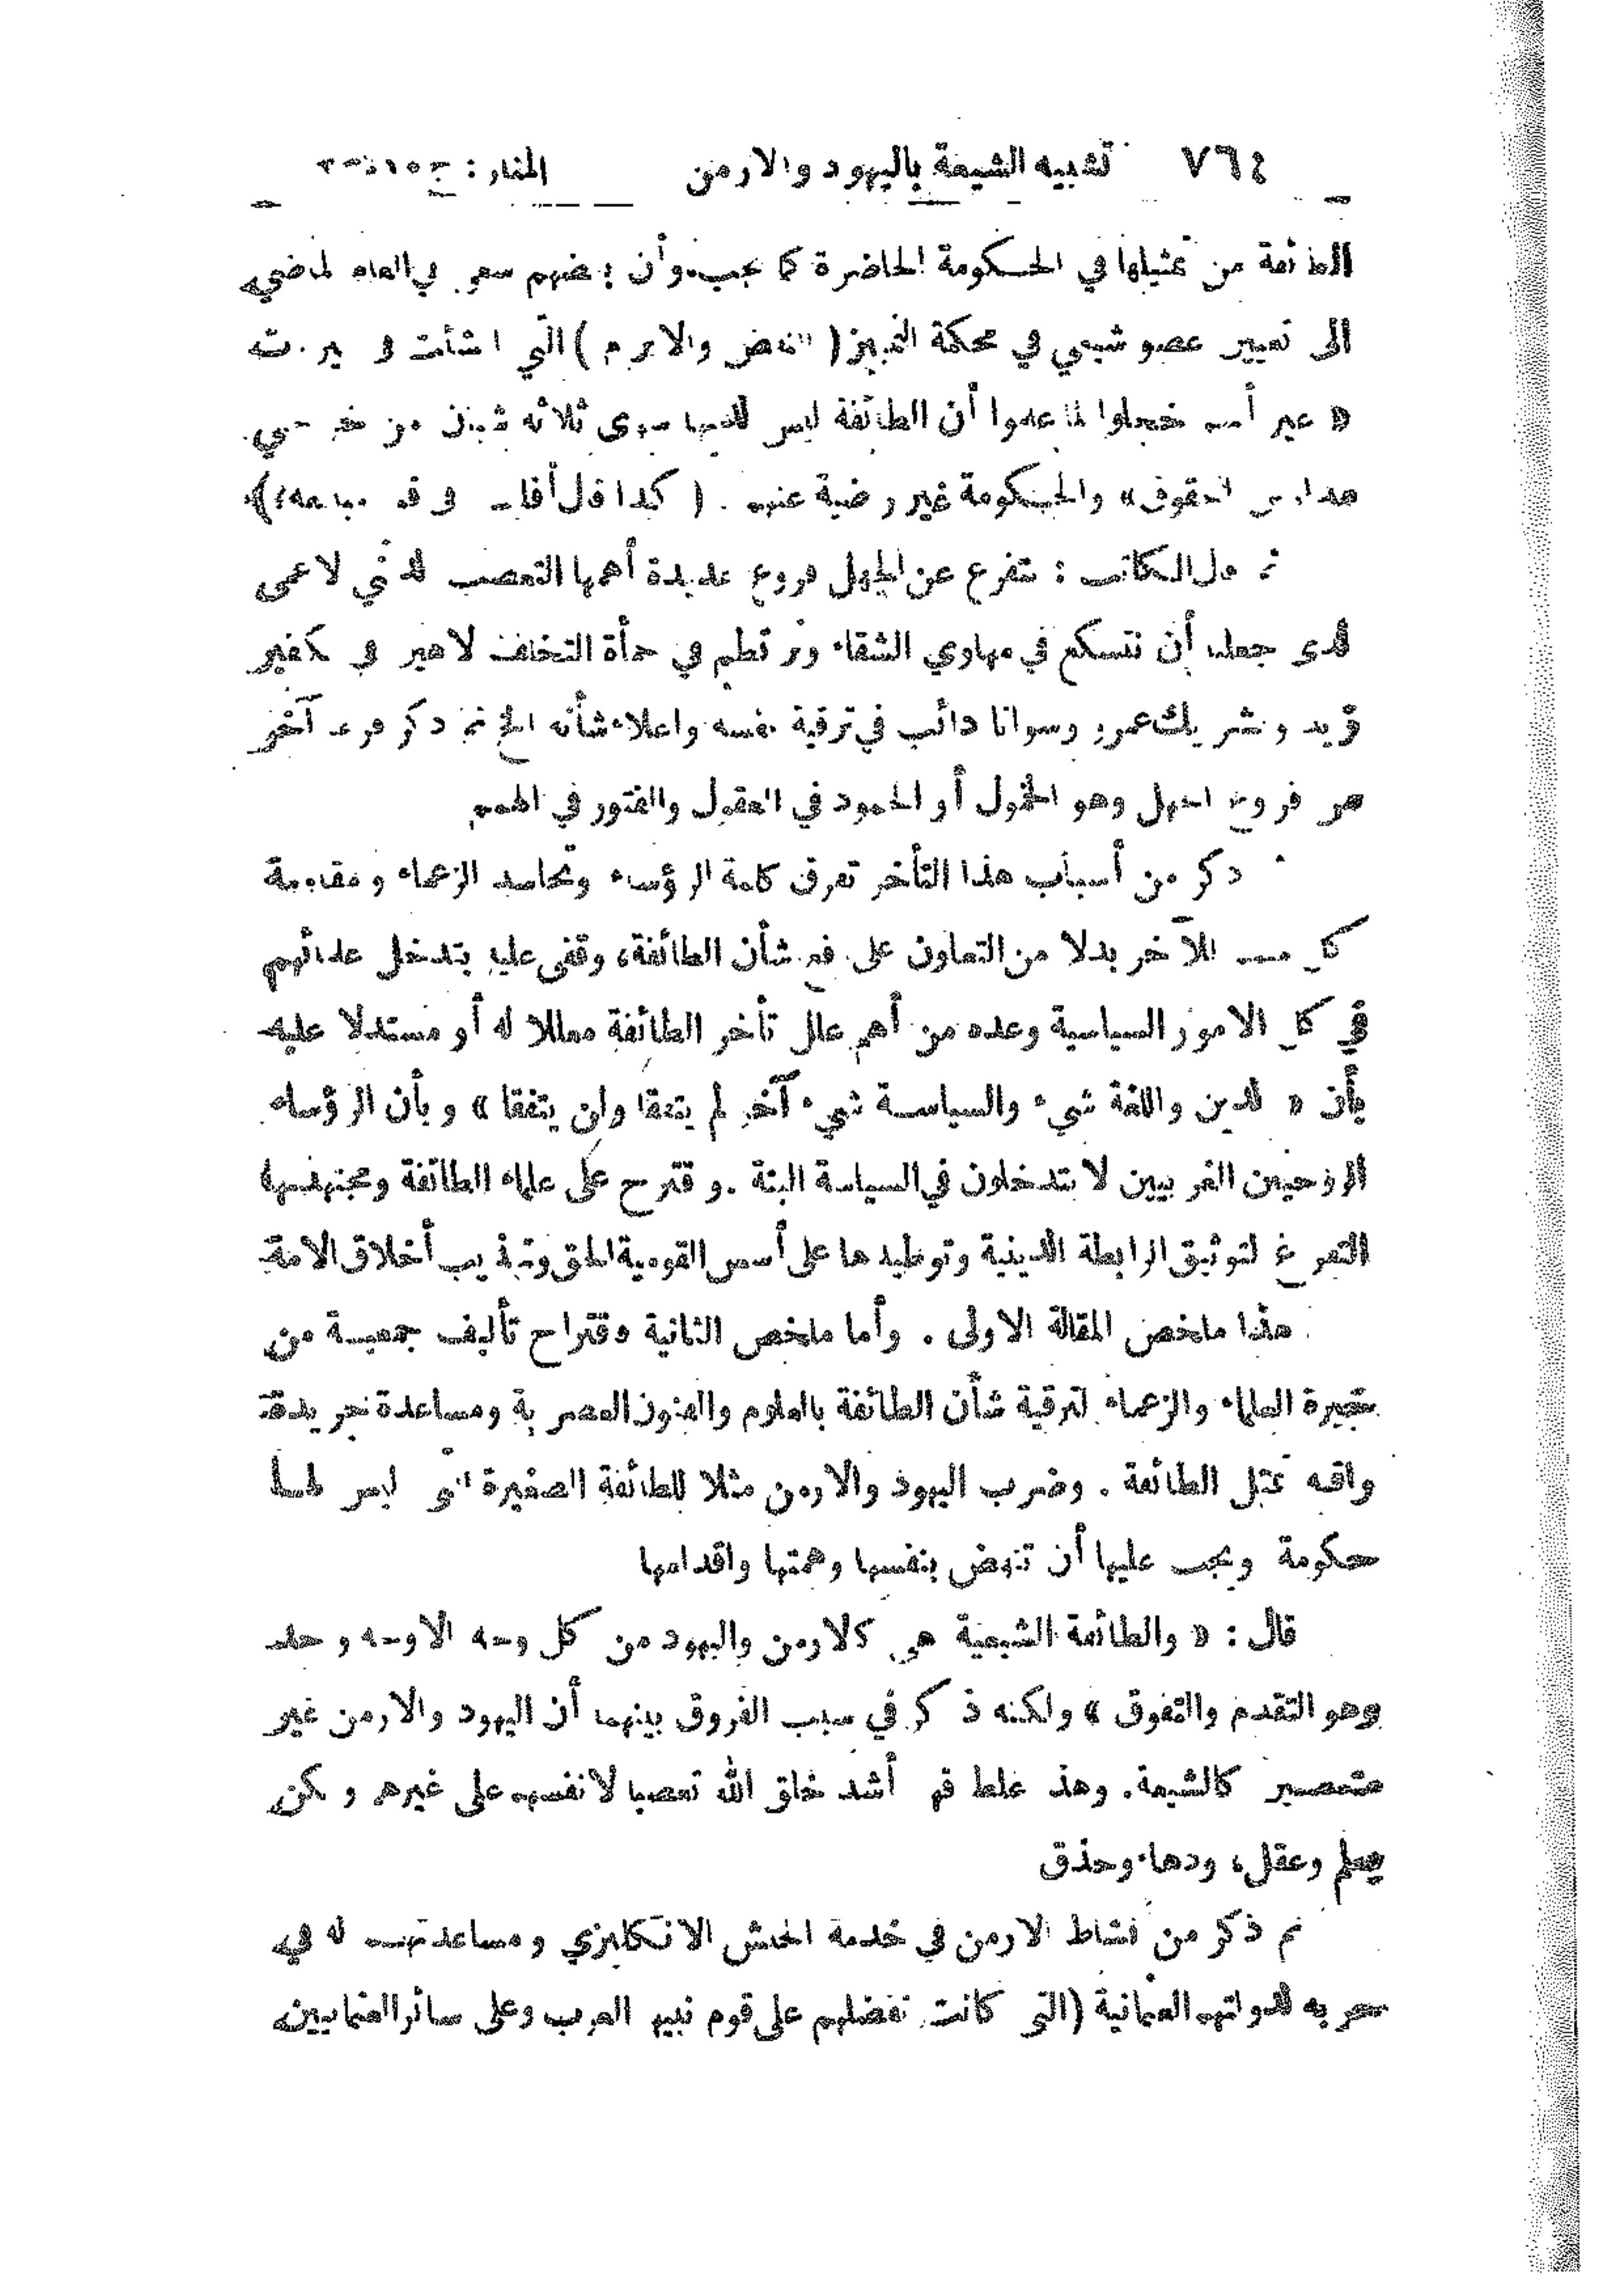 ٧٦٤ تشبيه الشيعة باليهود والارمن المنار : ج ١٠
الطائفة من تمثيلها في الحكومة الحاضرة كما يجب، وأن بعضهم سعى في العام الماضي
الى تعيين عضو شيعي في محكمة التمييز ( النقض والابرام ) التي انشأت في بيروت
« غير أنهم خجلوا لما علموا أن الطائفة ليس لديها سوى ثلاثة شبان من خريجي
مدارس الحقوق » والحكومة غير راضية عنهم . ( كذا قال
ثم قال الكاتب : تتفرع عن الجهل فروع عديدة أهمها التعصب الديني الاعمى
الذي جعلنا أن نتسكع في مهاوي الشقاء ونرتطم في حمأة التخلف لاهين في تكفير
زيد وتشريك عمرو وسوانا دائب في ترقية نفسه واعلاء شأنه الخ ثم ذكر فرعا آخر
من فروع الجهل وهو الخمول أو الجمود في العقول والفتور في الهمم
ذكر من أسباب هذا التأخر تفرق كلمة الرؤساء وتحاسد الزعماء ومقاومة
كل منهم للآخر بدلا من التعاون على رفع شأن الطائفة، وقفى عليه بتدخل علمائهم
في كل الامور السياسية وعده من أهم علل تأخر الطائفة معللا له أو مستدلا عليه
بأن « الدين واللغة شيء والسياسة شيء آخر لم يتفقا ولن يتفقا » وبأن الرؤساء
الروحيين الغربيين لا يتدخلون في السياسة البتة . واقترح على علماء الطائفة ومجتهديها
التفرغ لتوثيق الرابطة الدينية وتوطيدها على أسس القومية الحق وتهذيب أخلاق الامة
هذا ملخص المقالة الاولى . وأما ملخص الثانية فاقتراح تأليف جمعية من
خيرة العلماء والزعماء لترقية شأن الطائفة بالعلوم والفنون العصرية ومساعدة جريدة
راقية تمثل الطائفة . وضرب اليهود والارمن مثلا للطائفة الصغيرة التي ليس لها
حكومة ويجب عليها أن تنهض بنفسها وهمتها واقدامها
قال : « والطائفة الشيعية هي كالارمن واليهود من كل وجه الا وجه واحد
وهو التقدم والتفوق » ولكنه ذكر في سبب الفروق بينهما أن اليهود والارمن غير
متعصبين كالشيعة . وهذا غلط فهم أشد خلق الله تعصبا لانفسهم على غيرهم ولكن
بعلم وعقل، ودهاء وحذق
ثم ذكر من نشاط الارمن في خدمة الجيش الانكليزي ومساعدتهم له في
حربه لدولتهم العثمانية (التي كانت تفضلهم على قوم نبيها العرب وعلى سائر العثمانيين